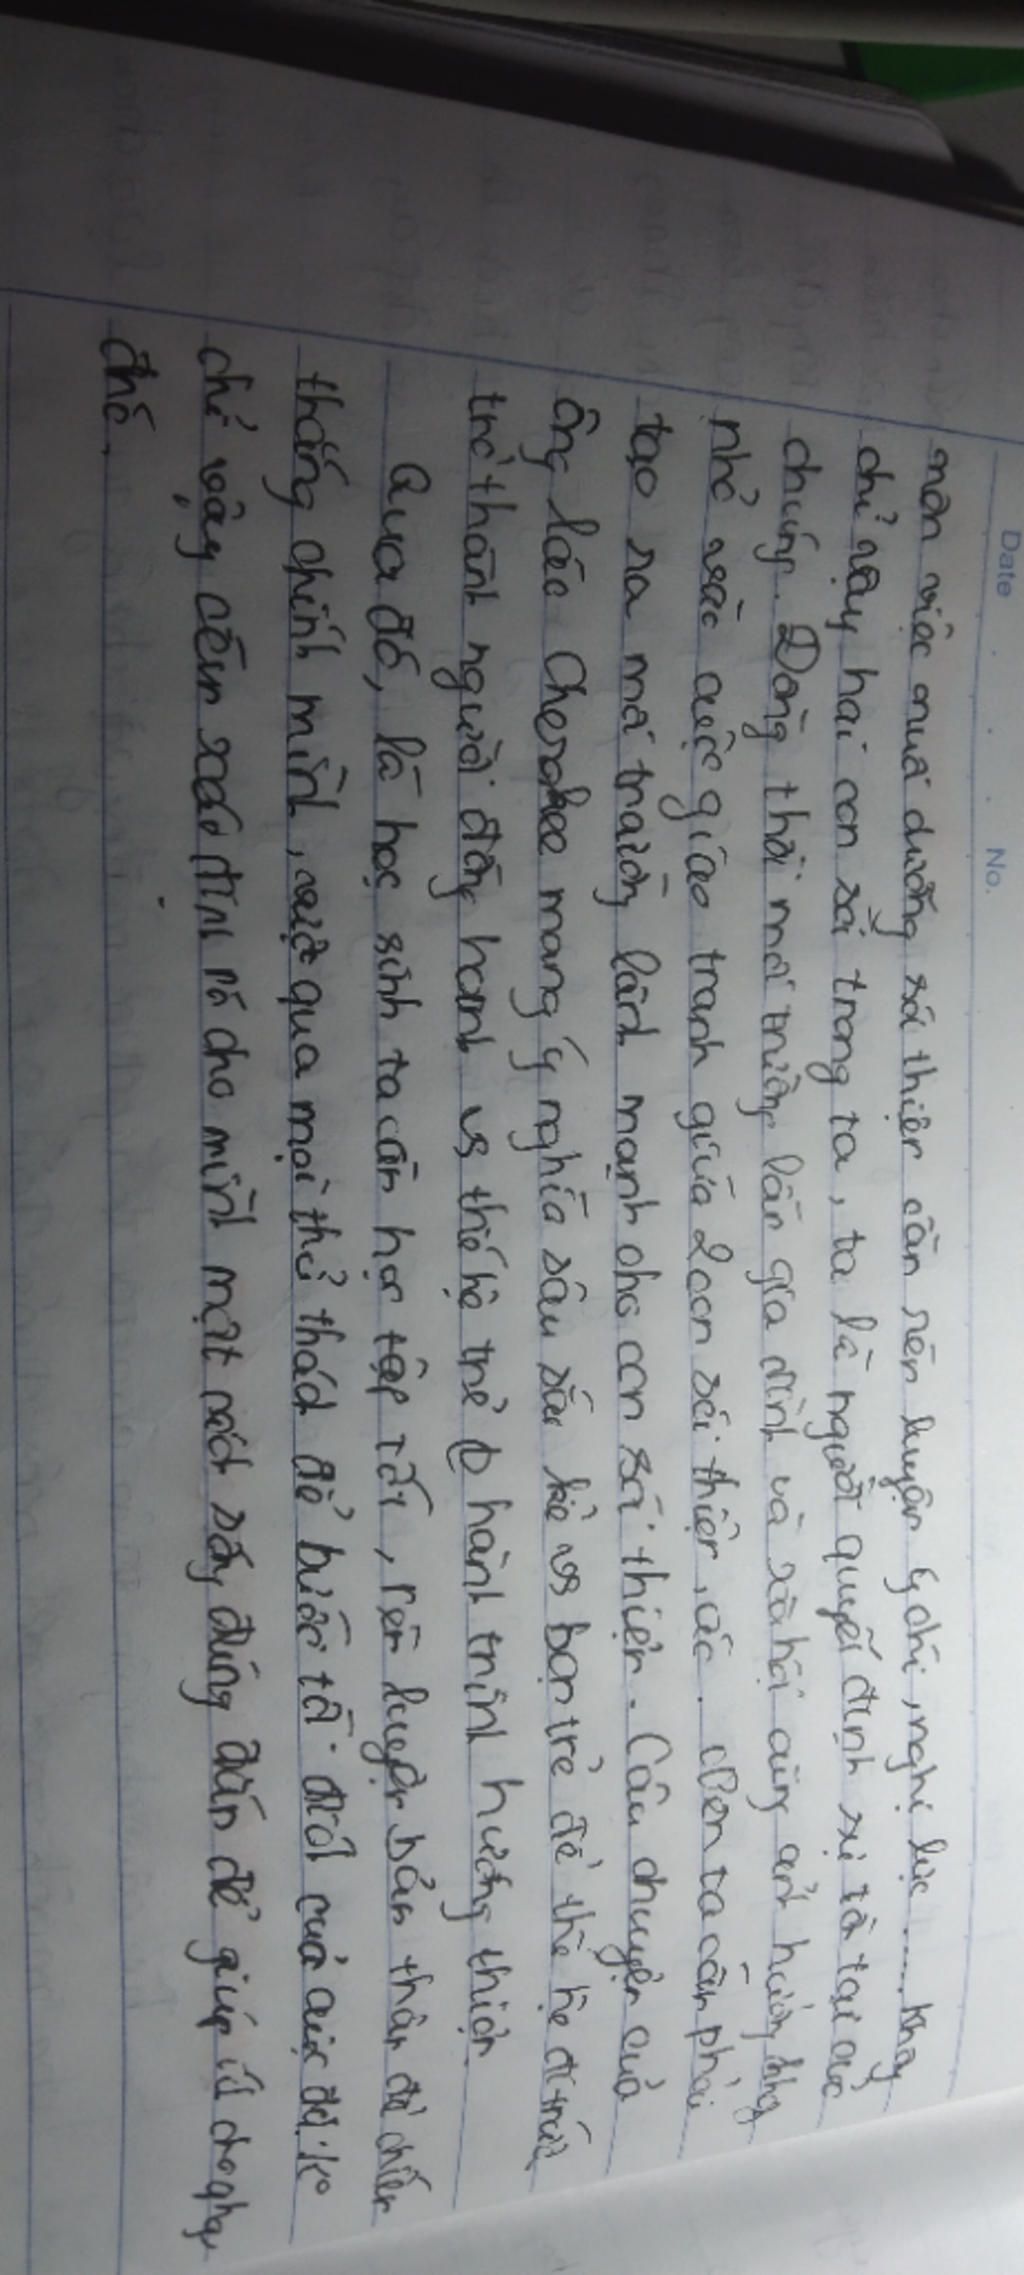 Date No.
môn việc nuôi dưỡng sói thiện cần rèn luyện ý chí, nghị lực..... Không
chỉ vậy, hai con sói trong ta, ta là người quyết định sự tồn tại của
chúng. Đồng thời môi trường lớn gia đình và xã hội cũng ảnh hưởng không
nhỏ vào cuộc giao tranh giữa 2 con sói thiện, ác. ta cần phải
tạo ra môi trường lành mạnh cho con sói thiện. Câu chuyện của
ông lão Cherokee mang ý nghĩa sâu sắc kể vs bạn trẻ để thế hệ đi trước
trở thành người đồng hành vs thế hệ trẻ hành trình hướng thiện.
Qua đó, là học sinh ta cần học tập tốt, rèn luyện bản thân để chiến
thắng chính mình, vượt qua mọi thử thách để bước tới đích của cuộc đời. Ko
chỉ vậy, cần xác định rõ cho mình một cách sống đúng đắn để giúp ích cho
đhổ.